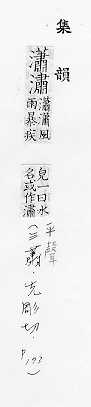 集韻
瀟潚瀟瀟風
雨暴疾
皃一曰水
名或作潚
平聲(三蕭.先彫切.